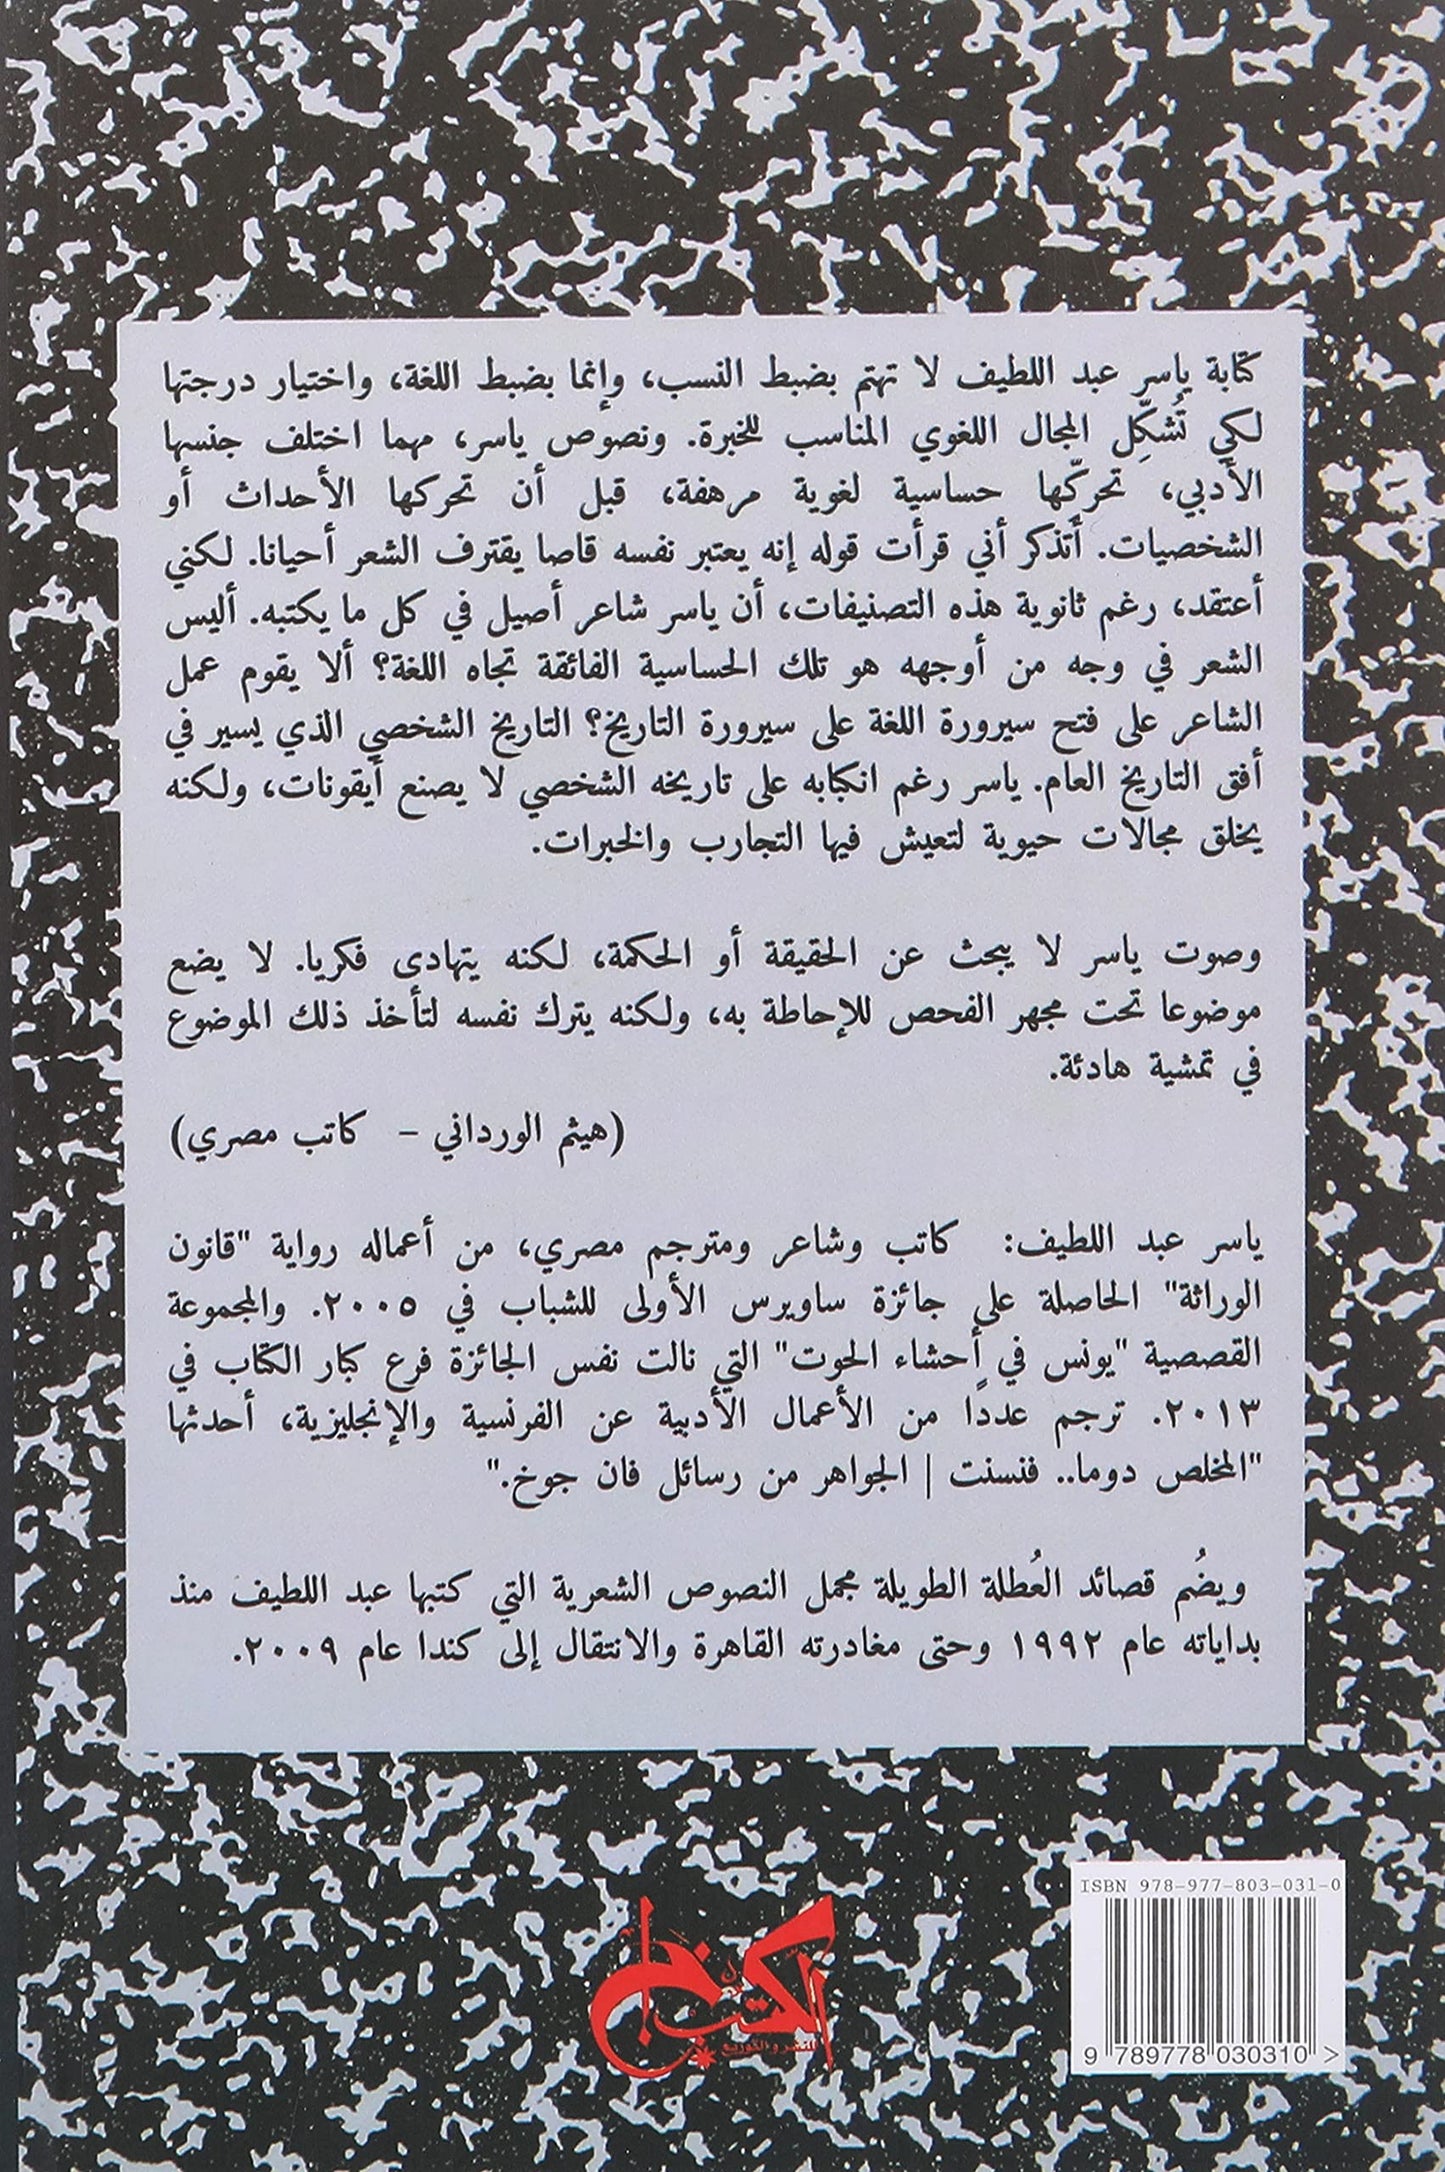 كتابة ياسر عبد اللطيف لا تهتم بضبط النسب، وإنما بضبط اللغة، واختيار درجتها
لكي تُشكِّل المجال اللغوي المناسب للخبرة. ونصوص ياسر، مهما اختلف جنسها
الأدبي، تحركّها حساسية لغوية مرهفة، قبل أن تحركها الأحداث أو
الشخصيات. أتذكر أني قرأت قوله إنه يعتبر نفسه قاصا يقترف الشعر أحيانا. لكني
أعتقد، رغم ثانوية هذه التصنيفات، أن ياسر شاعر أصيل في كل ما يكتبه. أليس
الشعر في وجه من أوجهه هو تلك الحساسية الفائقة تجاه اللغة؟ ألا يقوم عمل
الشاعر على فتح سيرورة اللغة على سيرورة التاريخ؟ التاريخ الشخصي الذي يسير في
أفق التاريخ العام. ياسر رغم انكبابه على تاريخه الشخصي لا يصنع أيقونات، ولكنه
يخلق مجالات حيوية لتعيش فيها التجارب والخبرات.
وصوت ياسر لا يبحث عن الحقيقة أو الحكمة، لكنه يتهادى فكريا. لا يضع
موضوعا تحت مجهر الفحص للإحاطة به، ولكنه يترك نفسه لتأخذ ذلك الموضوع
في تمشية هادئة.
(هيثم الورداني - كاتب مصري)
ياسر عبد اللطيف: كاتب وشاعر ومترجم مصري، من أعماله رواية "قانون
الوراثة" الحاصلة على جائزة ساويرس الأولى للشباب في ٢٠٠٥. والمجموعة
القصصية "يونس في أحشاء الحوت" التي نالت نفس الجائزة فرع كبار الكتاب في
٢٠١٣. ترجم عددًا من الأعمال الأدبية عن الفرنسية والإنجليزية، أحدثها
"المخلص دوما.. فنسنت | الجواهر من رسائل فان جوخ."
ويضُم قصائد العُطلة الطويلة مجمل النصوص الشعرية التي كتبها عبد اللطيف منذ
بداياته عام ١٩٩٢ وحتى مغادرته القاهرة والانتقال إلى كندا عام ٢٠٠٩.
ISBN 978-977-803-031-0
9 789778 030310 >
الكتب خان
للنشر والتوزيع